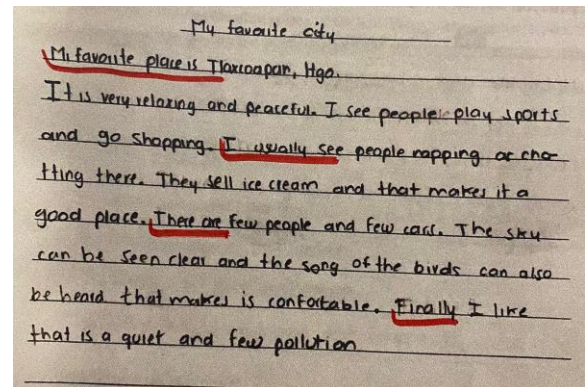 My favorite city
Mi favorite place is Tlaxcoapan, Hgo.
It is very relaxing and peaceful. I see people play sports
and go shopping. I usually see people napping or cha-
tting there. They sell ice cream and that makes it a
good place. There are few people and few cars. The sky
can be seen clear and the song of the birds can also
be heard that makes is confortable. Finally I like
that is a quiet and few pollution